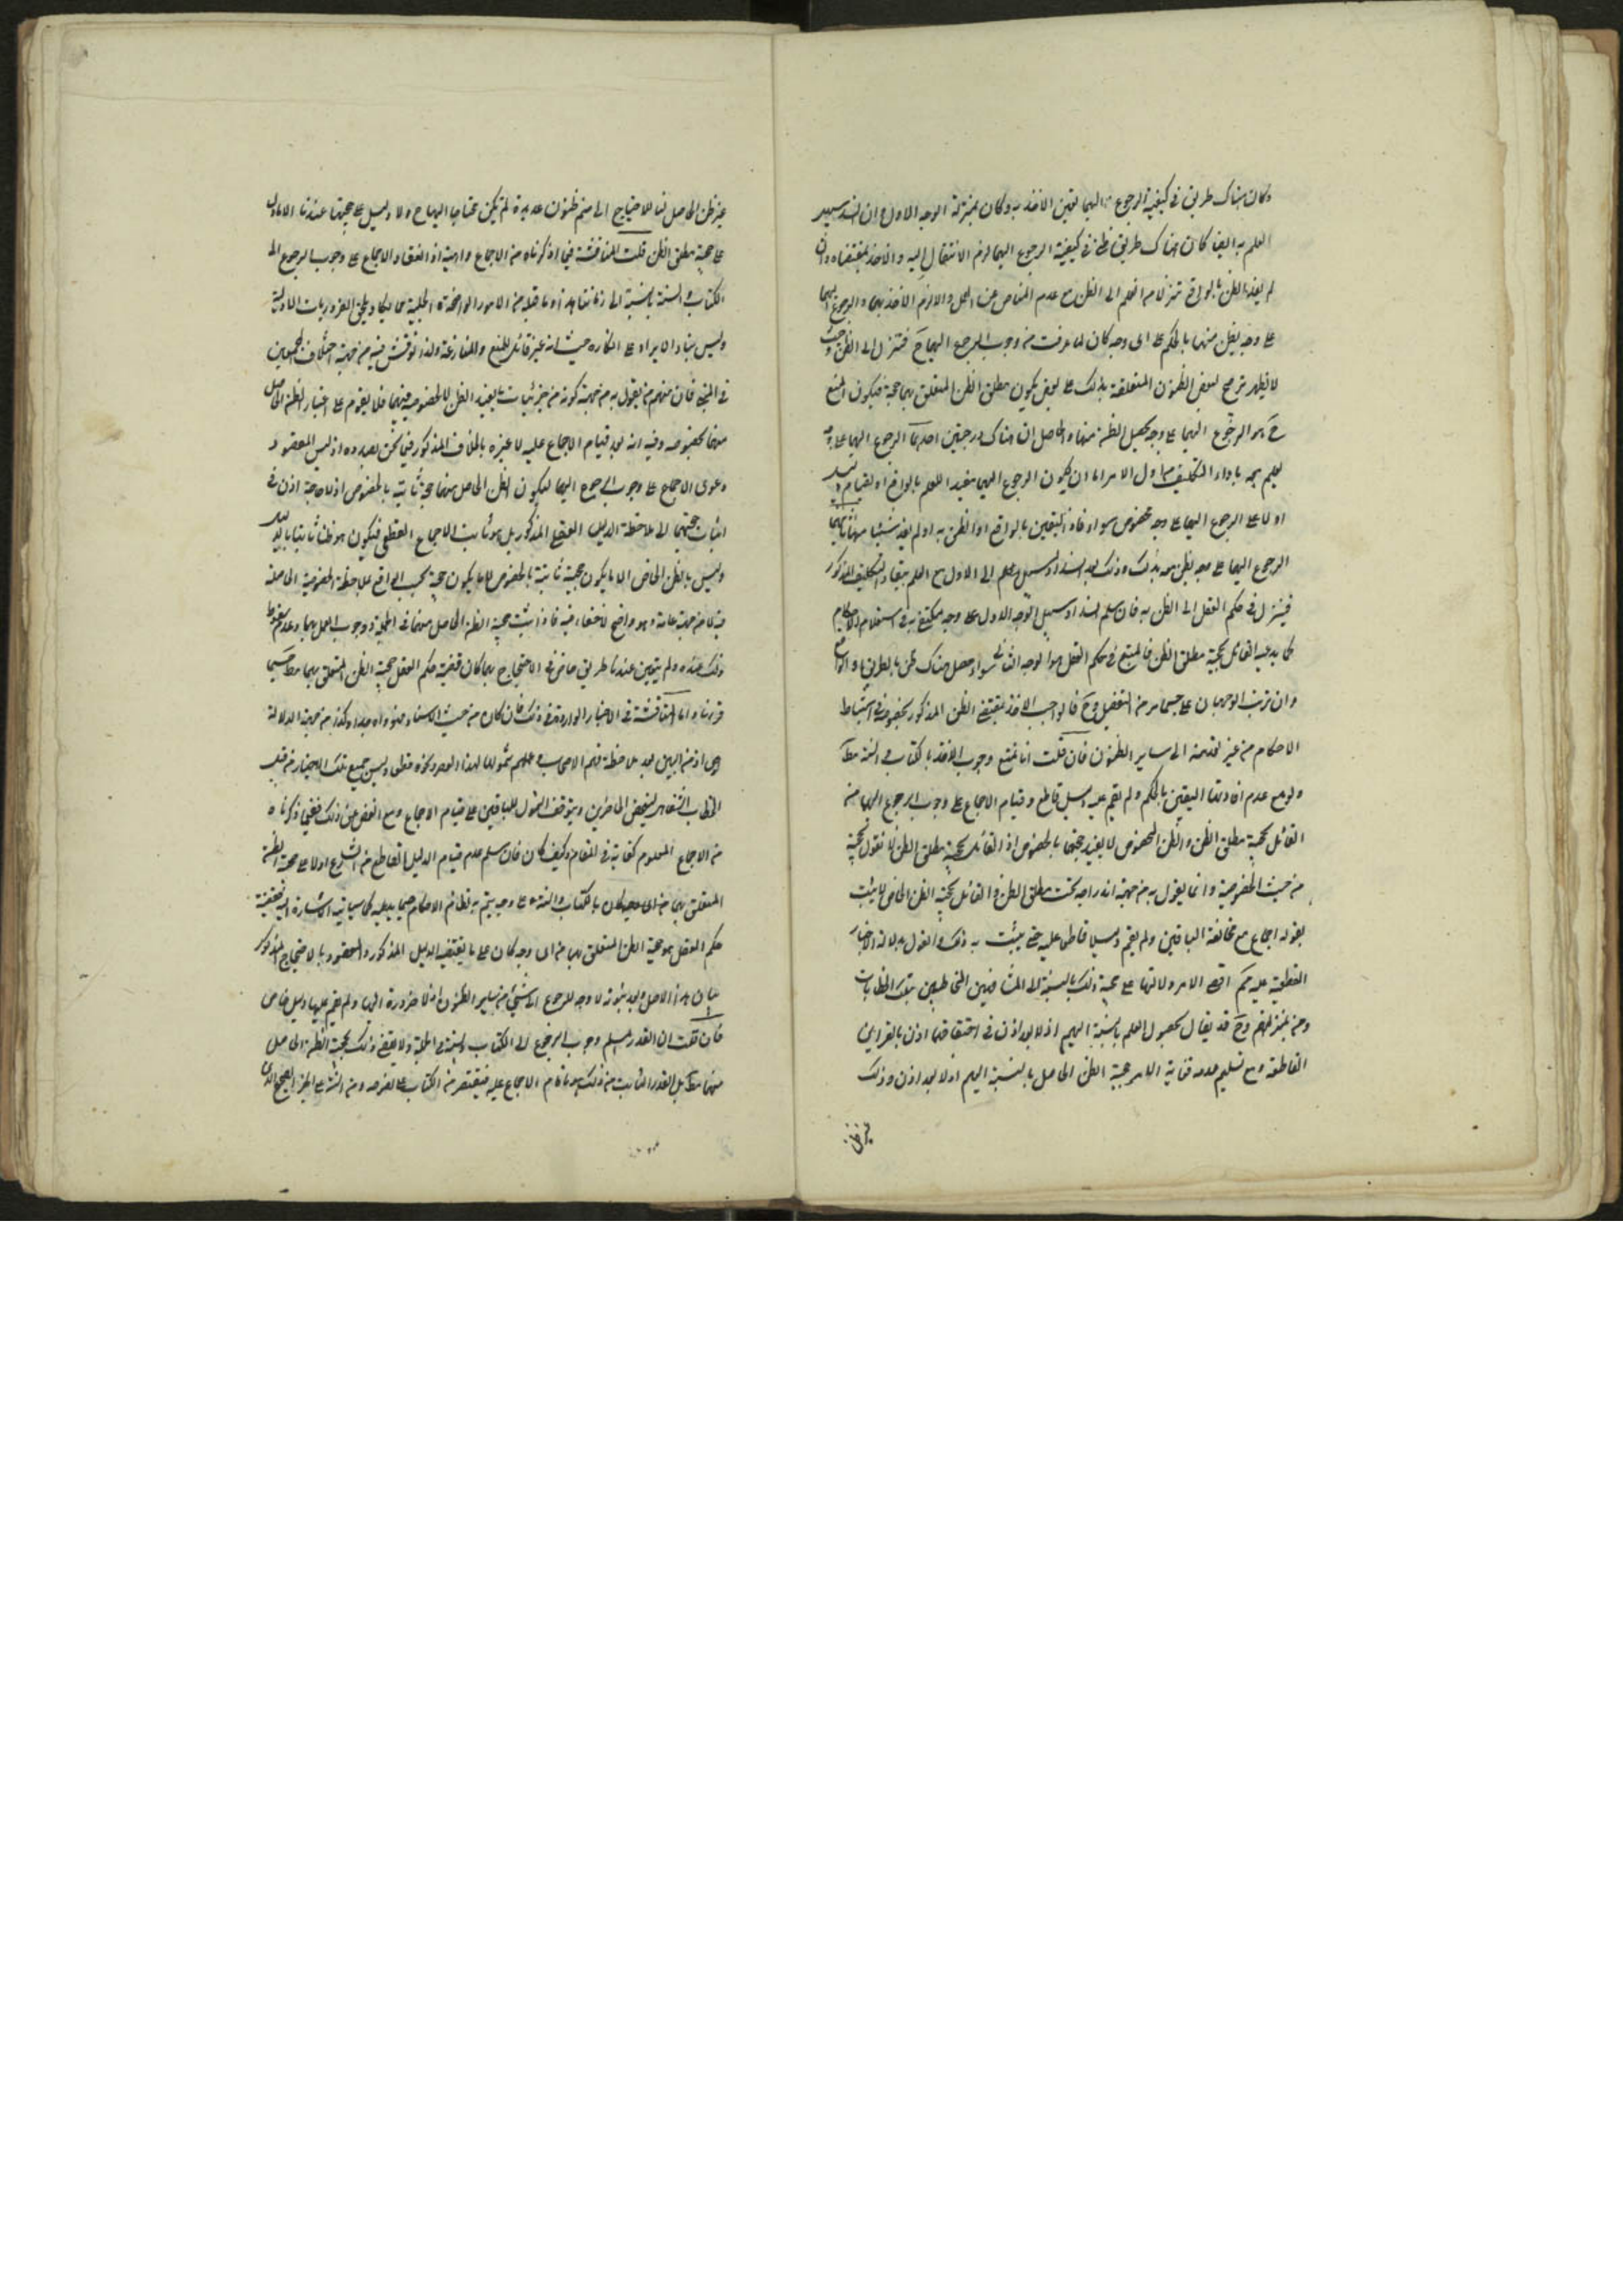 وكان هناك طريق في كيفية الرجوع اليهما تعين الاخذ به وكان بمنزلة الوجه الاول وان انسد سبيل
العلم به ايضا وكان هناك طريق ظني في كيفية الرجوع اليهما لزم الانتقال اليه والاخذ بمقتضاه وان
لم يفد الظن بالواقع تنزلا من العلم الى الظن مع عدم المناص عن العمل والا لزم الاخذ بهما والرجوع اليهما
على وجه يظن منهما بالحكم على اى وجه كان لما عرفت من وجوب الرجوع اليهما ح فتنزل الى الظن وحيث
لا يظهر ترجيح لبعض الظنون المتعلقة بذلك على بعض يكون مطلق الظن المتعلق بهما حجة فيكون المتبع
ح هو الرجوع اليهما على وجه يحصل الظن منهما والحاصل ان هناك درجتين احدهما الرجوع اليهما على وجه
يعلم معه باداء التكليف من اول الامر اما ان يكون الرجوع اليهما مفيدا للعلم بالواقع او لقيام دليل
اولا على الرجوع اليهما على وجه مخصوص سواء افاد اليقين بالواقع او الظن به او لم يفد شيئا منهما ثانيهما
الرجوع اليهما على وجه يظن معه بذلك وذلك بعد انسداد سبيل العلم الى الاول مع العلم ببقاء التكليف المذكور
فينزل في حكم العقل الى الظن به فان سلم انسداد سبيل الوجه الاول على وجه يكتفى به في استعلام الاحكام
كما يدعيه القائل بحجية مطلق الظن فالمتبع في حكم العقل هو الوجه الثاني سواء حصل هناك ظن بالطريق او الواقع
وان ترتب الوجهان على حسب ما مر من التفصيل وح فالواجب الاخذ بمقتضى الظن المذكور بخصوصه في استنباط
الاحكام من غير تعديه الى ساير الظنون فان قلت انا نمنع وجوب الاخذ بالكتاب والسنة مط
ولو مع عدم افادتهما اليقين بالحكم ولم يقم عليه دليل قاطع وقيام الاجماع على وجوب الرجوع اليهما من
القائل بحجية مطلق الظن والظن المخصوص لا يفيد حجيتهما بالخصوص اذ القائل بحجية مطلق الظن لا يقول بحجيته
من حيث الخصوصية وانما يقول به من جهة اندراجه تحت مطلق الظن والقائل بحجية الظن الخاص لا يثبت
بقوله اجماع مع مخالفة الباقين ولم يقم دليلا قاطعا عليه حتى يثبت به ذلك والقول بدلالة الاخبار
القطعية عليه ثم اقصى الامر دلالتها على حجية ذلك بالنسبة الى المشافهين المخاطبين بتلك الخطابات
ومن بمنزلتهم وح قد يقال بحصول العلم بالنسبة اليهم اذ لا بعد اذن في احتفافها اذن بالقراين
القاطعة ومع تسليم عدمه فغاية الامر حجية الظن الحاصل بالنسبة اليهم اذ لا بعد اذن وذلك
غير ظن
غير ظن الحاصل لنا للاحتياج الى ضم ظنون عديدة لم تكن محتاجا اليها ح ولا دليل على حجيتها عندنا الا ما دل
على حجية مطلق الظن قلت المناقشة فيما ذكرناه من الاجماع واهية اذ انعقاد الاجماع على وجوب الرجوع الى
الكتاب والسنة بالنسبة الى زماننا هذا وما قبله من الامور الواضحة الجلية مما يكاد يلحق الضروريات الاولية
وليس بناء الايراد على انكاره حيث انه غير قابل للمنع والمنازعة ولذا نوقش فيه من جهة اختلاف المجمعين
في المبنى فان منهم من يقول به من جهة كونه من جزئيات ما يفيد الظن لا لخصوصية فيهما فلا يقوم على اعتبار الظن الحاصل
منهما بخصوصه وفيه انه بعد قيام الاجماع عليه لا عبرة بالخلاف المذكور فيما نحن بصدده اذ ليس المقصود
دعوى الاجماع على وجوب الرجوع اليهما ليكون الظن الحاصل منهما حجة ثابتة بالخصوص اذ لا حاجة اذن في
اثبات حجيتهما الى ملاحظة الدليل العقلي المذكور بل هو ثابت بالاجماع القطعي فيكون هو ظنا ثابتا بالدليل
وليس بالظن الخاص الا ما يكون حجيته ثابتة بالخصوص لا ما يكون حجة بحسب الواقع بملاحظة الخصوصية الحاصلة
فيه لا من جهة عامة وهو واضح لا خفاء فيه فاذا ثبت حجية الظن الحاصل منهما في الجملة ووجوب العمل بهما وعدم سقوط
ذلك عنا ولم يتعين عندنا طريق خاص في الاحتجاج بهما كان قضية حكم العقل حجية الظن المتعلق بهما مط حسبما
قررنا واما المناقشة في الاخبار الواردة في ذلك فان كان من حيث الاسناد فهو واه جدا وكذا من جهة الدلالة
اذ من البين بعد ملاحظة فهم الاصحاب وعملهم شمولها لهذا الاعصار ونحوه قطعا وليس جميع تلك الاخبار من قبيل
الخطاب الشفاهي ليختص الحاضرين ويتوقف الشمول للباقين على قيام الاجماع ومع الغض عن ذلك ففي ما ذكرناه
من الاجماع المعلوم كفاية في المقام وكيف كان فان سلم عدم قيام الدليل القاطع من الشرع اولا على حجية الظن
المتعلق بهما من اى وجه كان بالكتاب والسنة على وجه يتم به نظام الاحكام حسبما يدعيه كما سيأتي الاشارة اليه فقضية
حكم العقل هو حجية الظن المتعلق بهما من اى وجه كان على ما يقتضيه الدليل المذكور والمقصود بالاحتجاج المذكور
بيان هذا الاصل وبعد ثبوته لا وجه للرجوع الى شيء من ساير الظنون اذ لا ضرورة اليها ولم يقم عليها دليل خاص
فان قلت ان القدر المسلم وجوب الرجوع الى الكتاب والسنة في الجملة ولا يقتضي ذلك بحجية الظن الحاصل
منهما مط بل القدر الثابت من ذلك هو ما قام الاجماع عليه فيقتصر من الكتاب على نصوصه ومن السنة على الخبر الصحيح الذي